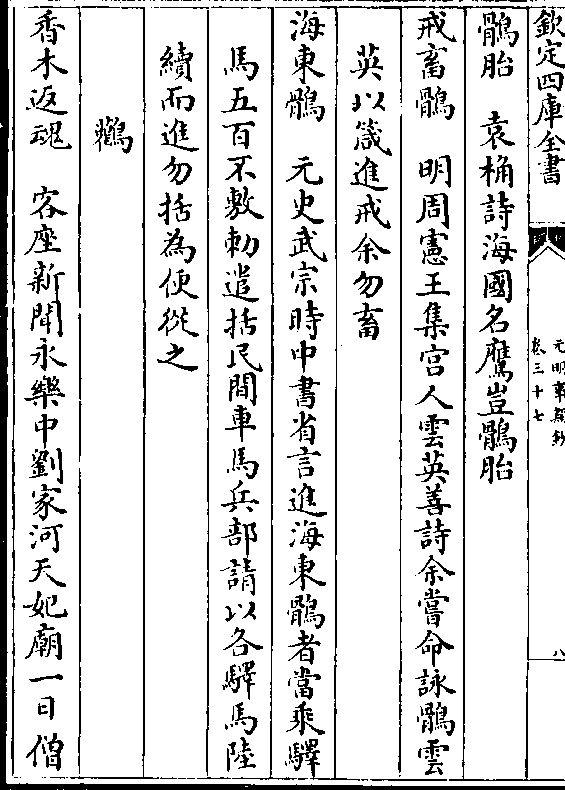 欽定四庫全書
元明事類鈔
卷三十七
八
鶻胎　袁桷詩海國名鷹豈鶻胎
戒畜鶻　明周憲王集宫人雲英善詩余嘗命詠鶻雲
英以箴進戒余勿畜
海東鶻　元史武宗時中書省言進海東鶻者當乘驛
馬五百不敷勅遣括民間車馬兵部請以各驛馬陸
續而進勿括為便從之
鸛
香木返魂　客座新聞永樂中劉家河天妃廟一日僧